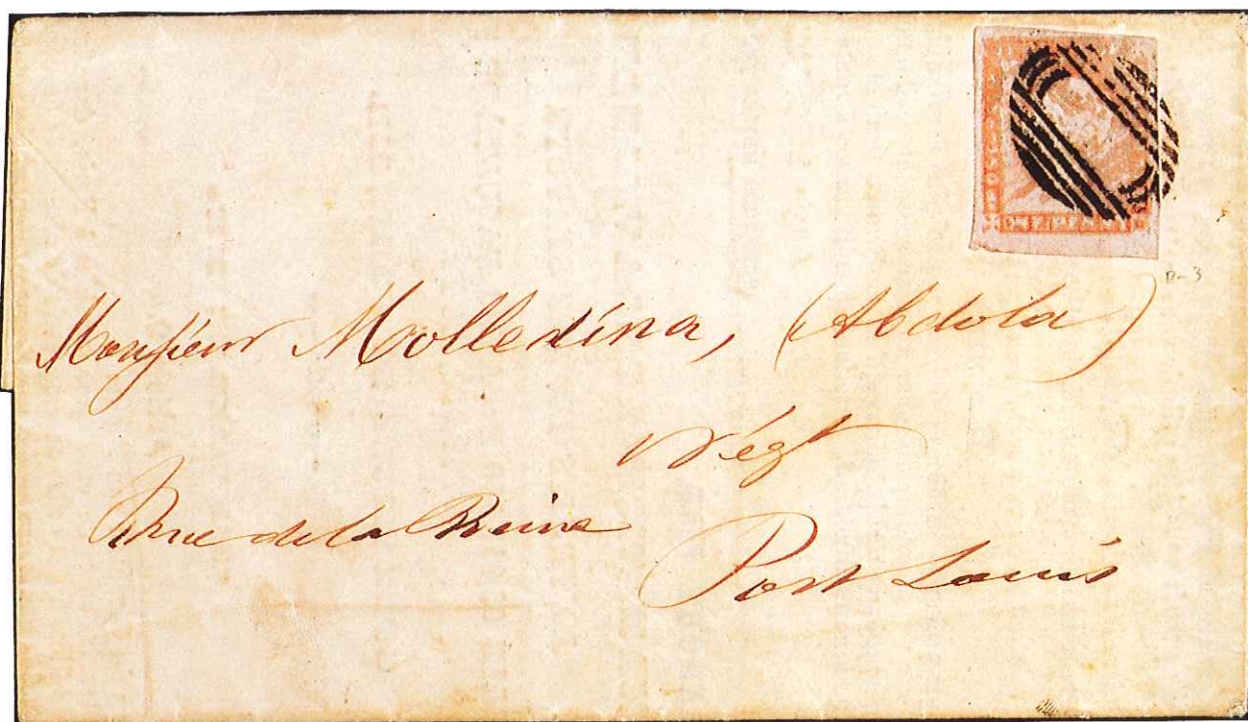 ONE PENNY
B-3
Monsieur Molledina, (Abdola)
Négt
Rue de la Reine
Port Louis